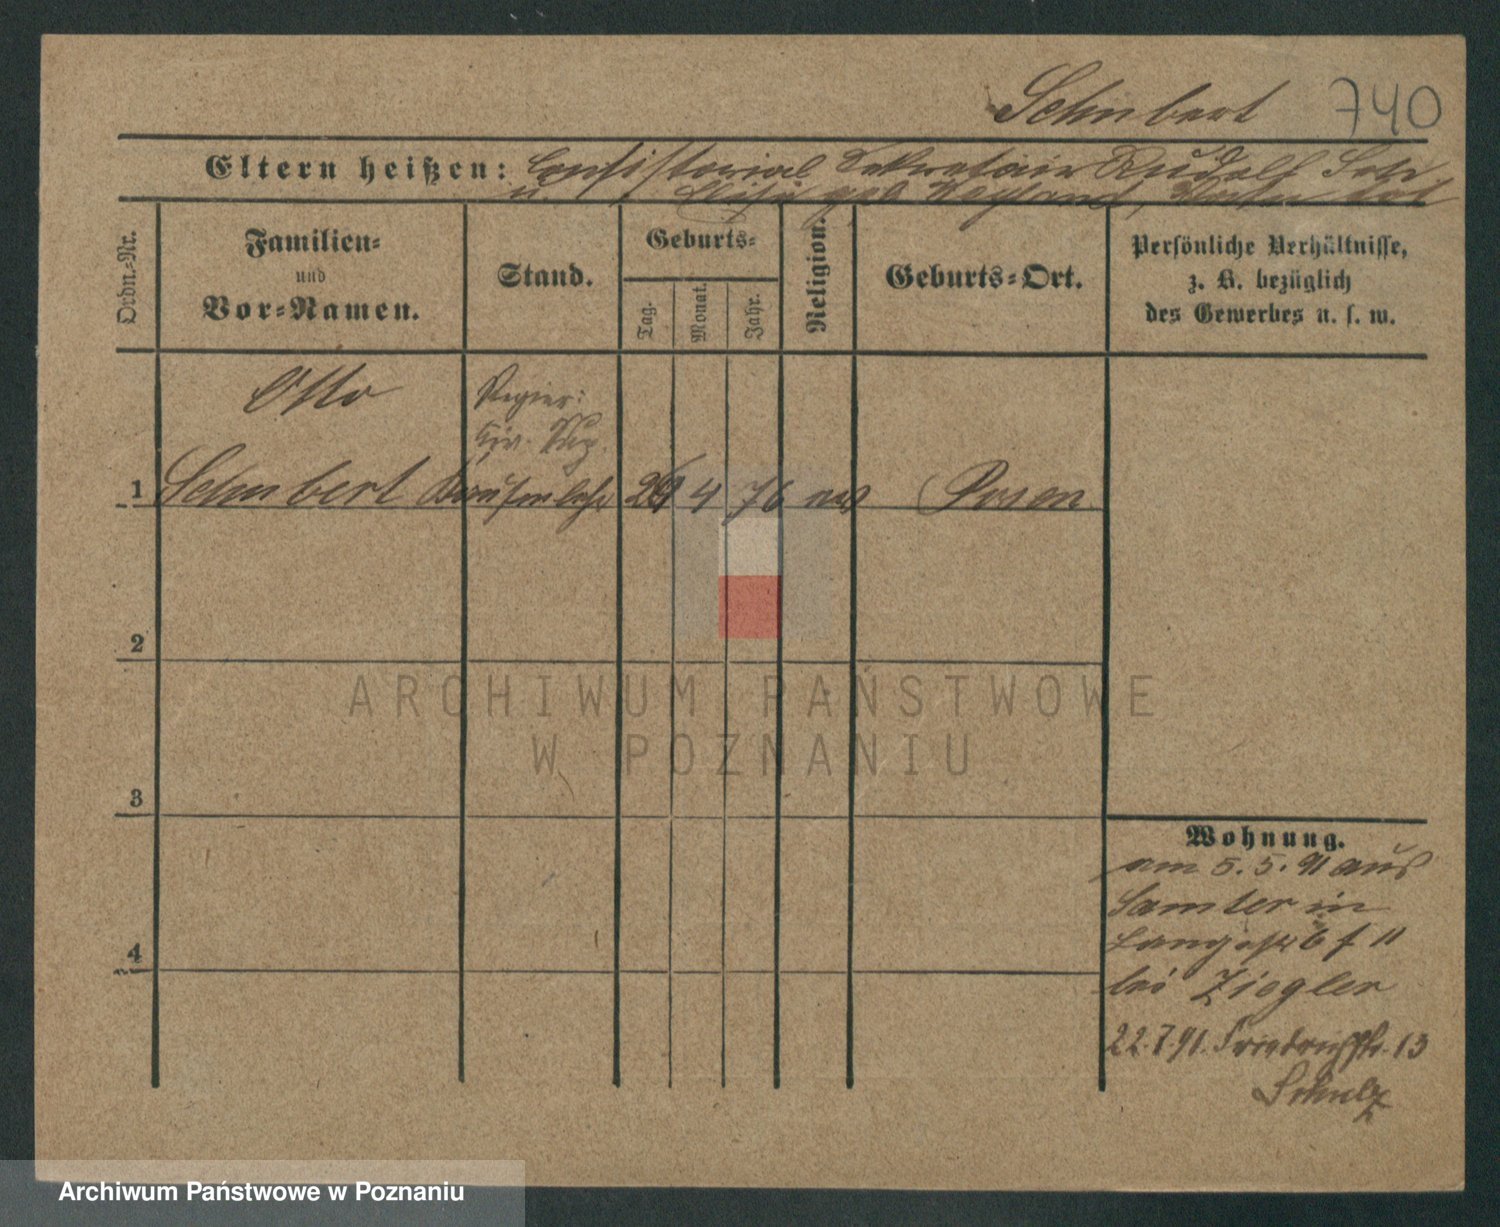 Schubert 740
Eltern heißen: Consistorial Sekretair Rudolf Sch
u. geb. Weyland,
Ordn.-Nr.
Familien-
und
Vor-Namen.
Stand.
Geburts-
Tag.
Monat.
Jahr.
Religion.
Geburts-Ort.
Persönliche Verhältnisse,
z. B. bezüglich
des Gewerbes u. s. w.
Otto Regier:
Civ. Sup.
1 Schubert 4 76 Posen
2
ARCHIWUM PAŃSTWOWE
W POZNANIU
3
Wohnung.
am 5. 5. 91 aus
Samter in
Langestr 6 f II
4
bei Ziegler
22.7.91. Friedrichstr. 13
Schulz
Archiwum Państwowe w Poznaniu